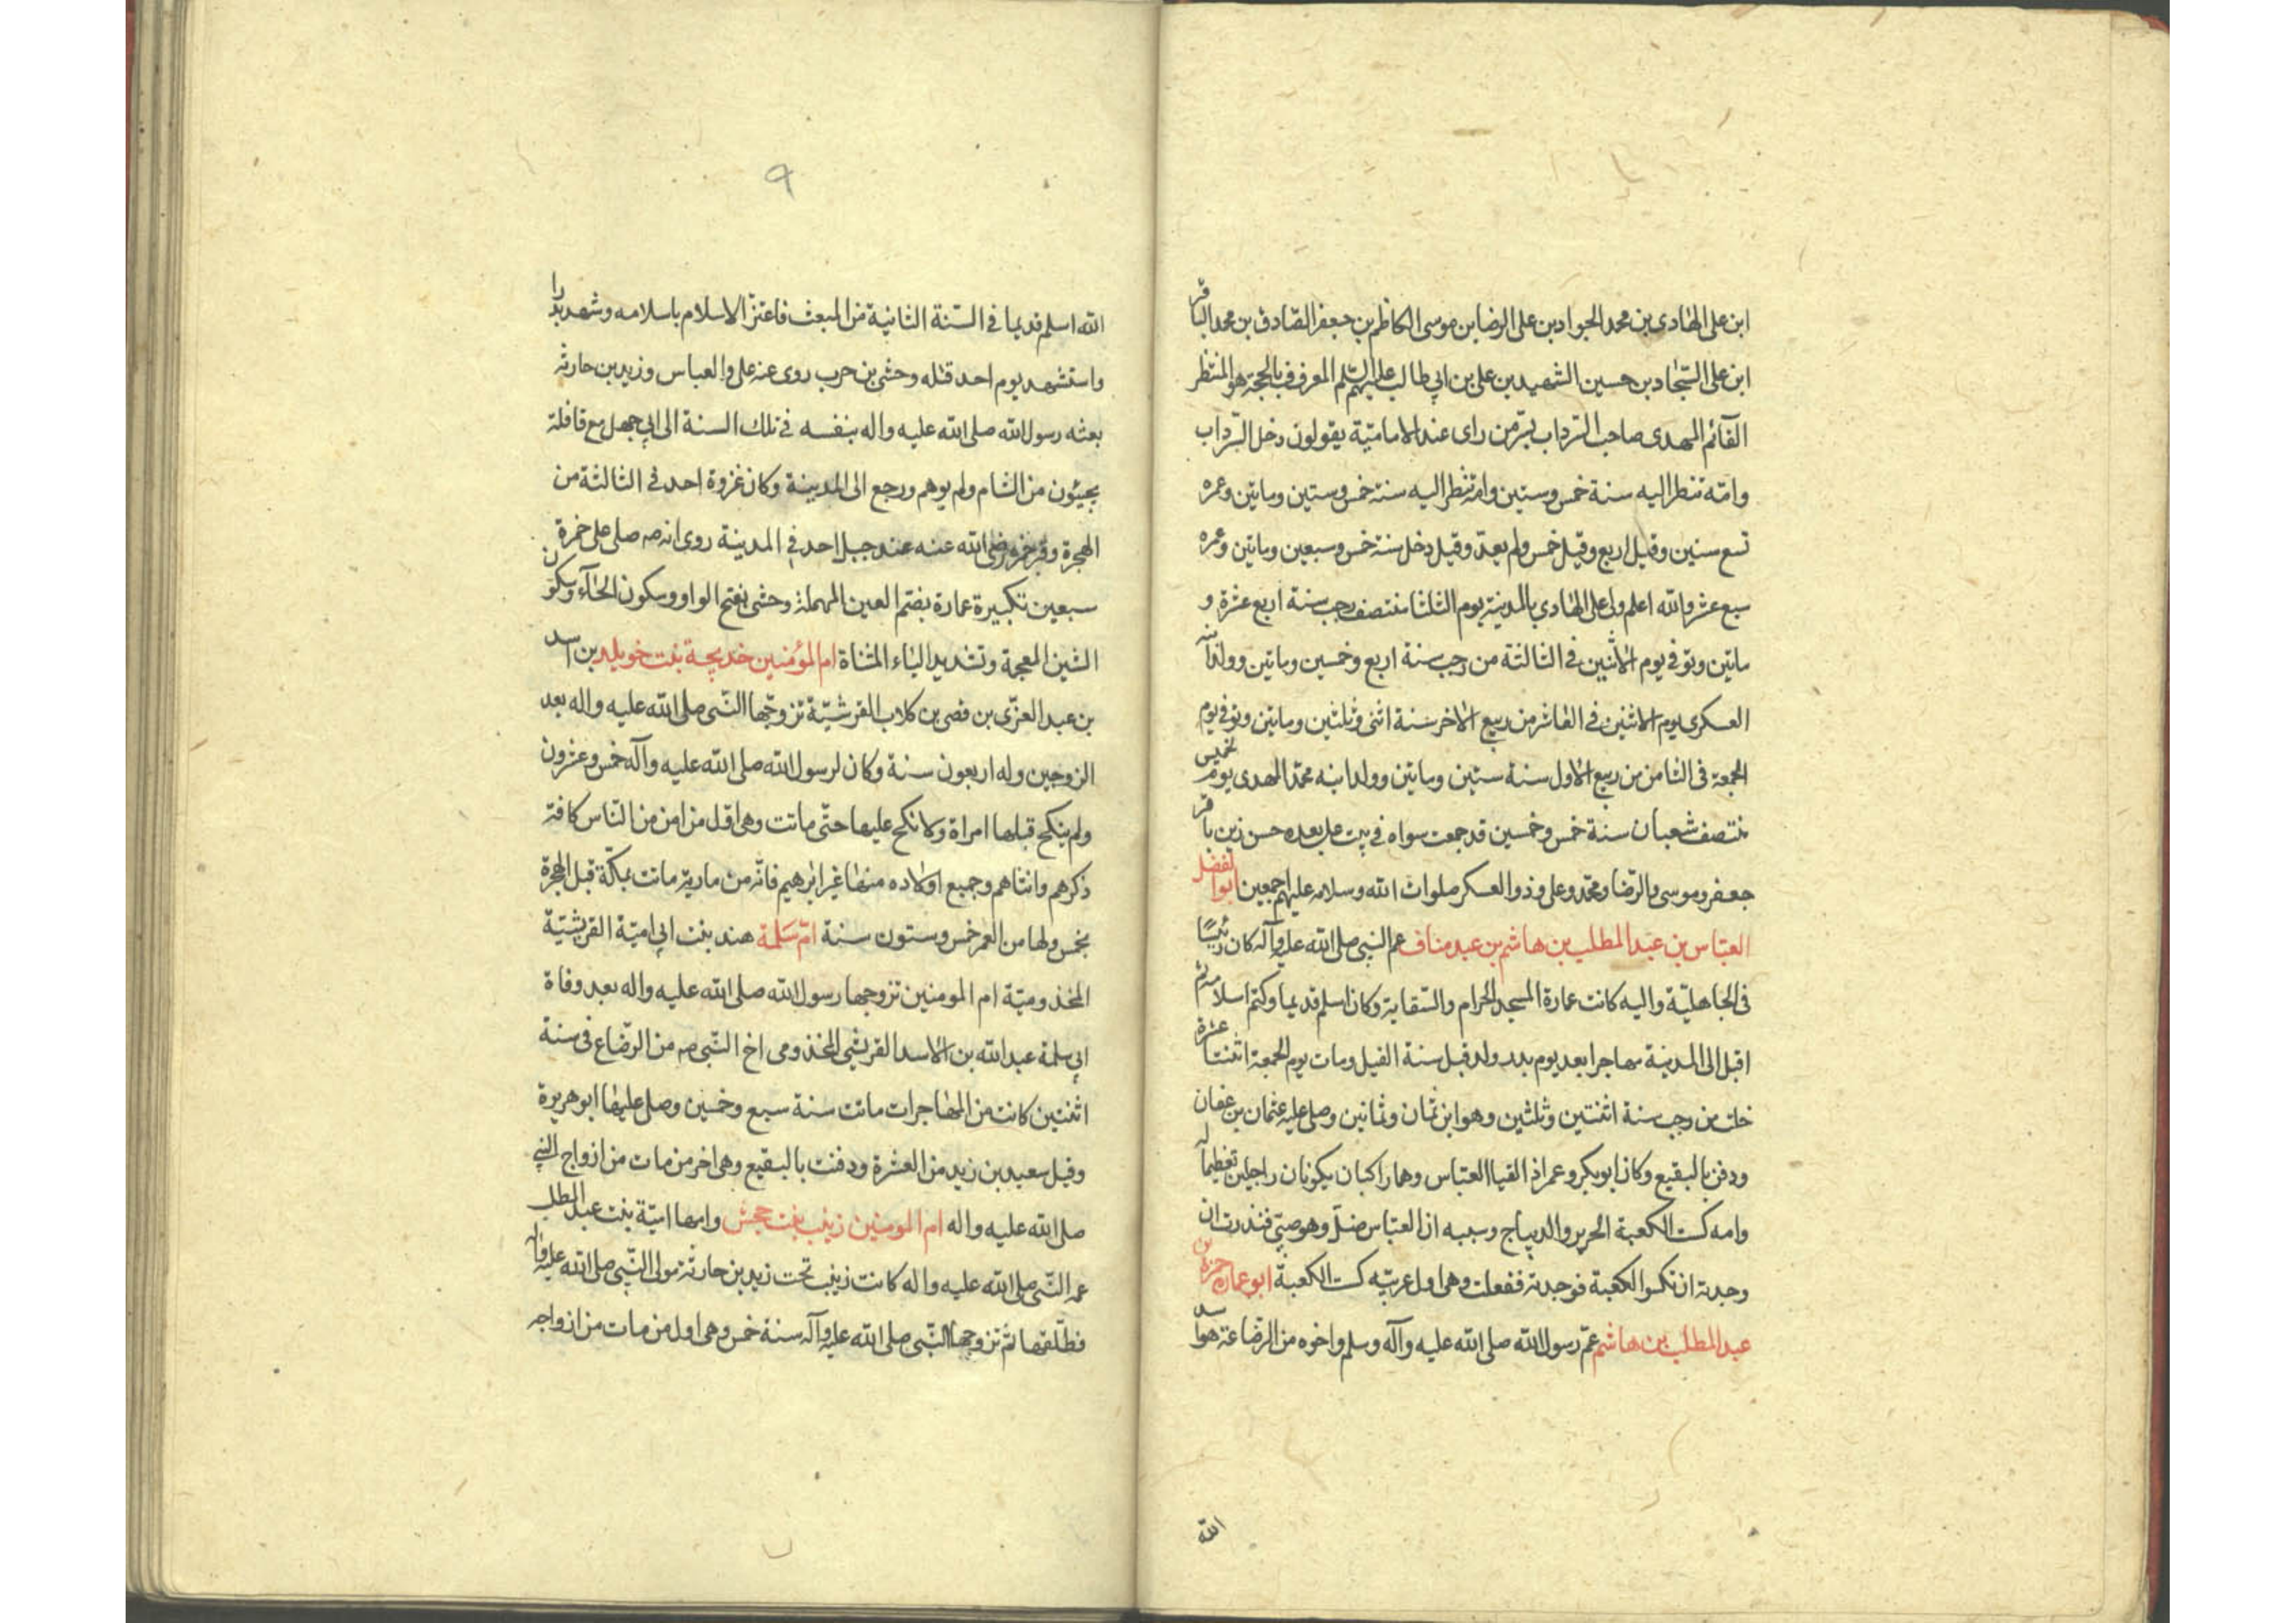 ابن على الهادى بن محمد الجواد بن على الرضا بن موسى الكاظم بن جعفر الصادق بن محمد الباقر
ابن على السّجاد بن حسين الشهيد بن على بن ابي طالب عليهم السّلم المعرف فى بالحجة هو المنتظر
القآئم المهدى صاحب السّرداب بسرّ من راى عند الاماميّة يقولون دخل السّرداب
وامّه تنظر اليه سنة خمس وستين وامّه تنظر اليه سنة خمس وستين وماتين وعمره
تسع سنين وقيل اربع وقيل خمس ولم يعدّ وقيل دخل سنة خمس وسبعين وماتين وعمره
سبع عشر والله اعلم ولد على الهادي بالمدينة يوم الثلثا منتصف رجب سنة اربع عشرة و
ماتين وتوفى يوم الاثنين فى الثالثة من رجب سنة اربع وخمسين وماتين وولد ابنه
العسكرى يوم الاثنين فى العاشر من ربيع الاخر سنة اثنى وثلثين وماتين وتوفى يوم
الجمعة فى الثامن من ربيع الاول سنة ستين وماتين وولد ابنه محمّد المهدى يوم خميس
منتصف شعبان سنة خمس وخمسين قد جمعت سواه فى بيت على بعده حسن زين باقر
جعفر وموسى بالرّضا ومحمّد وعلى وذوالعسكر صلوات الله وسلامه عليهم اجمعين ابوالفضل
العبّاس بن عبد المطلب بن هاشم بن عبد مناف عم النبى صلى الله عليه وآله كان رئيسًا
فى الجاهليّة واليه كانت عمارة المسجد الحرام والسّقاية وكان اسلم قديما وكتم اسلامه ثم
اقبل الى المدينة مهاجرا بعد يوم بدر ولد قبل سنة الفيل ومات يوم الجمعة اثنتا عشرة
خلت من رجب سنة اثنتين وثلثين وهو ابن ثمان وثمانين وصلى عليه عثمان بن عفان
ودفن بالبقيع وكان ابو بكر وعمر اذ القيا العبّاس وهما راكبان يكونان راجلين تعظيما له
وامه كست الكعبة الحرير والديباج وسببه ان العبّاس ضلّ وهو صبىّ فنذرت ان
وجدته ان تكسوا الكعبة فوجدته ففعلت وهى اول عربيّه كست الكعبة ابو عماره حمزة بن
عبد المطلب بن هاشم عمّ رسول الله صلى الله عليه وآله وسلم واخوه من الرّضاعة هو اسد
الله
٩
الله اسلم قديما فى السّنة الثانية من المبعث فاعتزّ الاسلام باسلامه وشهد بدرا
واستشهد يوم احد قتله وحشى بن حرب روى عنه على والعباس وزيد بن حارثه
بعثه رسول الله صلى الله عليه واله بنفسه فى تلك السنة الى ابى جهل مع قافلة
يجيئون من الشام ولم يوهم ورجع الى المدينة وكان غزوة احد فى الثالثة من
الهجرة وقبر حمزه رضى الله عنه عند جبل احد فى المدينة روى انه صه صلى على حمزة
سبعين تكبيرة عمارة بضم العين المهملة وحشى بفتح الواو وسكون الحآء وسكون
الشين المعجمة وتشديد الياء المثناة ام المؤمنين خديجة بنت خويلد بن اسد
بن عبد العزّى بن قصى بن كلاب القرشيّة تزوّجها النّبى صلى الله عليه واله بعد
الزوجين وله اربعون سنة وكان لرسول الله صلى الله عليه وآله خمس وعشرون
ولم ينكح قبلها امراة ولا نكح عليها حتّى ماتت وهى اوّل من امن من النّاس كافة
ذكرهم وانثاهم وجميع اولاده منها غير ابراهيم فانّه من مارية ماتت بمكّة قبل الهجرة
بخمس ولها من العمر خمس وستون سنة امّ سَلمة هند بنت ابى اميّة القريشيّة
المخذوميّة ام المومنين تزوجها رسول الله صلى الله عليه واله بعد وفاة
ابى سلمة عبد الله بن الاسد القريشى المخذومى اخ النّبى صه من الرّضاع فى سنة
اثنتين كانت من المهاجرات ماتت سنة سبع وخمسين وصلى عليها ابو هريرة
وقيل سعيد بن زيد من العشرة ودفنت بالبقيع وهى اخر من مات من ازواج النبى
صلى الله عليه واله ام المومنين زينب بنت جحش وامها اميّة بنت عبد المطلب
عمه النّبى صلى الله عليه واله كانت زينب تحت زيد بن حارثة مولى النّبى صلى الله عليه واله
فطلّقها ثم تزوجها النّبى صلى الله عليه وآله سنة خمس وهى اول من مات من ازواجه